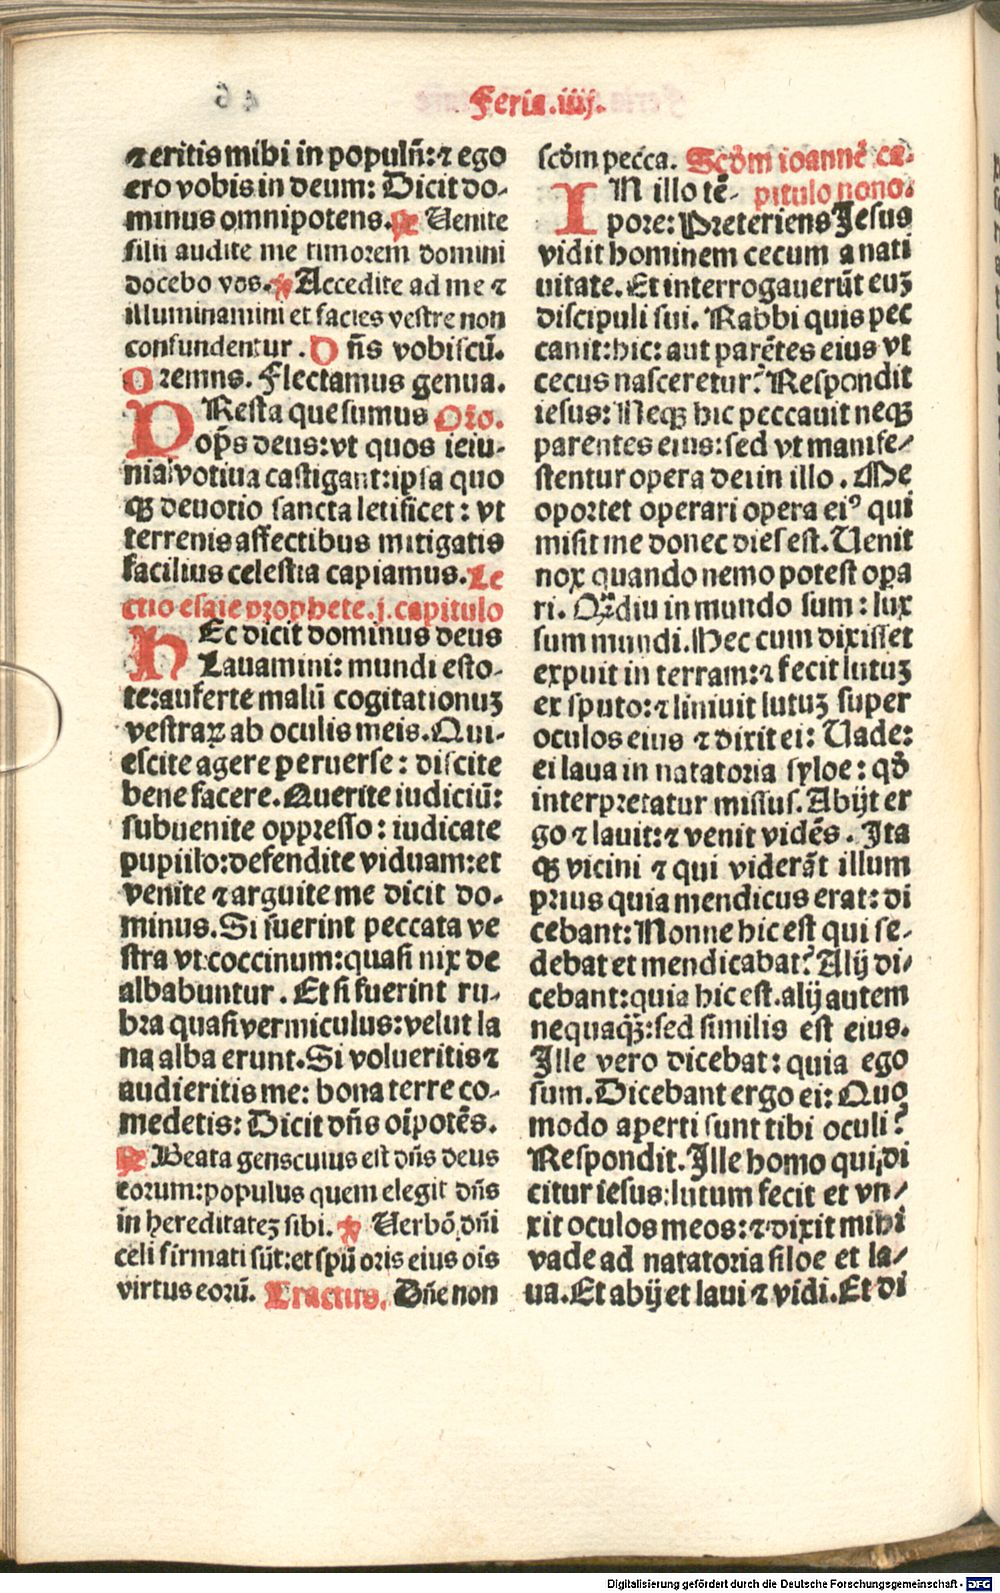 Feria.iiij.
⁊ eritis mihi in populũ: ⁊ ego
ero vobis in deum: Dicit do-
minus omnipotens. ℟ Uenite
filii audite me timorem domini
docebo vos. ℣ Accedite ad me ⁊
illuminamini et facies vestre non
confundentur. Dñs vobiscũ.
Oremus. Flectamus genua.
PResta quesumus Oro.
op̃s deus: vt quos ieiu-
nia votiua castigant: ipsa quo
qꝫ deuotio sancta letificet: vt
terrenis affectibus mitigatis
facilius celestia capiamus. Le
ctio esaie prophete. j. capitulo
HEc dicit dominus deus
Lauamini: mundi esto-
te: auferte malũ cogitationuꝫ
vestraꝝ ab oculis meis. Qui-
escite agere peruerse: discite
bene facere. Querite iudiciũ:
subuenite oppresso: iudicate
pupillo: defendite viduam: et
venite ⁊ arguite me dicit do-
minus. Si fuerint peccata ve
stra vt coccinum: quasi nix de
albabuntur. Et si fuerint ru-
bra quasi vermiculus: velut la
na alba erunt. Si volueritis ⁊
audieritis me: bona terre co-
medetis: Dicit dñs oĩpotẽs.
℟ Beata gens cuius est dñs deus
eorum: populus quem elegit dñs
in hereditateꝫ sibi. ℣ Uerbõ dñi
celi firmati sũt: et spũ oris eius oĩs
virtus eorũ. Tractus. Dñe non
scďm pecča. Scďm ioannẽ ca-
pitulo nono.
IN illo tẽ-
pore: Preteriens Jesus
vidit hominem cecum a nati
uitate. Et interrogauerũt euꝫ
discipuli sui. Rabbi quis pec
cauit: hic: aut parẽtes eius vt
cecus nasceretur? Respondit
iesus: Neqꝫ hic peccauit neqꝫ
parentes eius: sed vt manife-
stentur opera dei in illo. Me
oportet operari opera eiꝰ qui
misit me donec dies est. Uenit
nox quando nemo potest opa
ri. Qr̃diu in mundo sum: lux
sum mundi. Hec cum dixisset
expuit in terram: ⁊ fecit lutuꝫ
ex sputo: ⁊ liniuit lutuꝫ super
oculos eius ⁊ dixit ei: Uade:
ei laua in natatoria syloe: qď
interpretatur missus. Abijt er
go ⁊ lauit: ⁊ venit vidẽs. Ita
qꝫ vicini ⁊ qui viderãt illum
prius quia mendicus erat: di
cebant: Nonne hic est qui se-
debat et mendicabat? Alij di-
cebant: quia hic est. alij autem
nequaqꝫ̃: sed similis est eius.
Ille vero dicebat: quia ego
sum. Dicebant ergo ei: Quo
modo aperti sunt tibi oculi?
Respondit. Ille homo qui di
citur iesus: lutum fecit et vn-
xit oculos meos: ⁊ dixit mihi
vade ad natatoria siloe et la-
ua. Et abij et laui ⁊ vidi. Et di
Digitalisierung gefördert durch die Deutsche Forschungsgemeinschaft - DFG